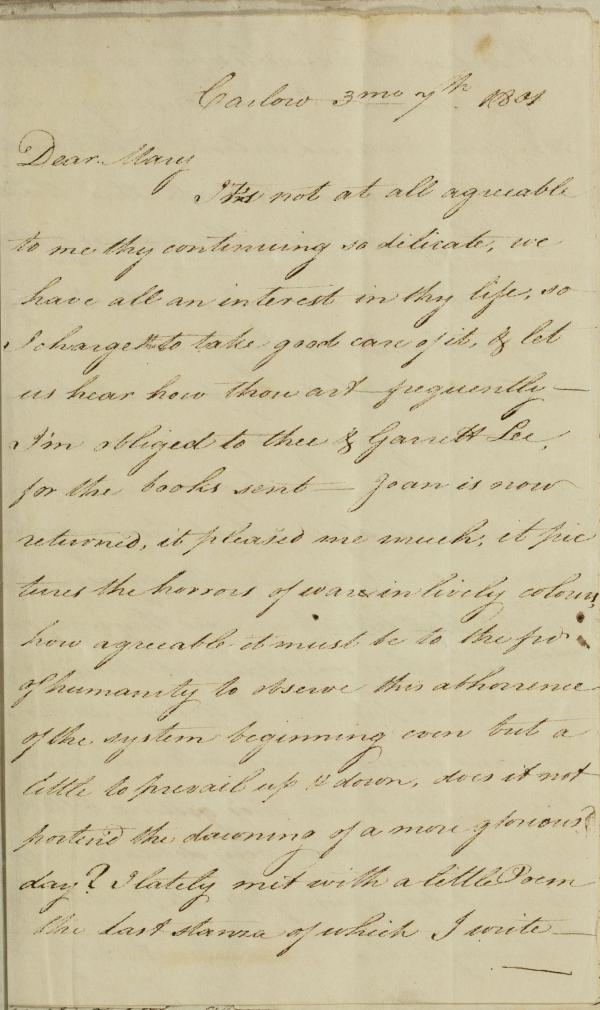 Carlow 3mo 7th 1801
Dear Mary
It's not at all agreeable
to me thy continuing so delicate, we
have all an interest in thy life, so
I charge to take good care of it, & let
us hear how thou art frequently —
I'm obliged to thee & Garrett Lee,
for the books sent — Joan is now
returned, it pleased me much, it pic
tures the horrors of war in lively colours,
how agreeable it must be to the
of humanity to observe this abhorrence
of the system beginning even but a
little to prevail up & down, does it not
portend the dawning of a more glorious
day? I lately met with a little Poem
the last stanza of which I write —